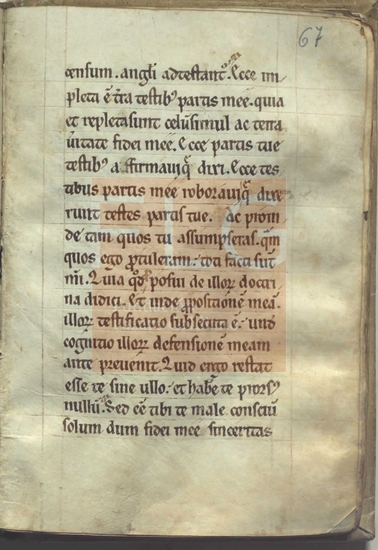 67
censum. angli adtestant᷑. Ecce im-
pleta ē t̃ra testib᷒ partis mee. quia
et repleta sunt celum simul ac terra
ueritate fidei mee. Ecce partis tue
testib᷒ affirmaui q̃ dixi. Ecce tes
tibus partis mee roboraui q̃ dixe
runt testes partis tue. Ac proin
de tam quos tu assumpseras. qm̃
quos ego protuleram: toti facti sunt
mī. Quia qd̃ posui de illoꝝ doctri
na didici. Et inde ꝓpositionē meā
illoꝝ testificatio subsecuta ē. unde
cognitio illoꝝ defensionem meam
ante preuenit. Quid ergo restat
esse te sine ullo: et habe te prors᷒
nullū. Sed eē tibi te male consciū
solum dum fidei mee sinceritas